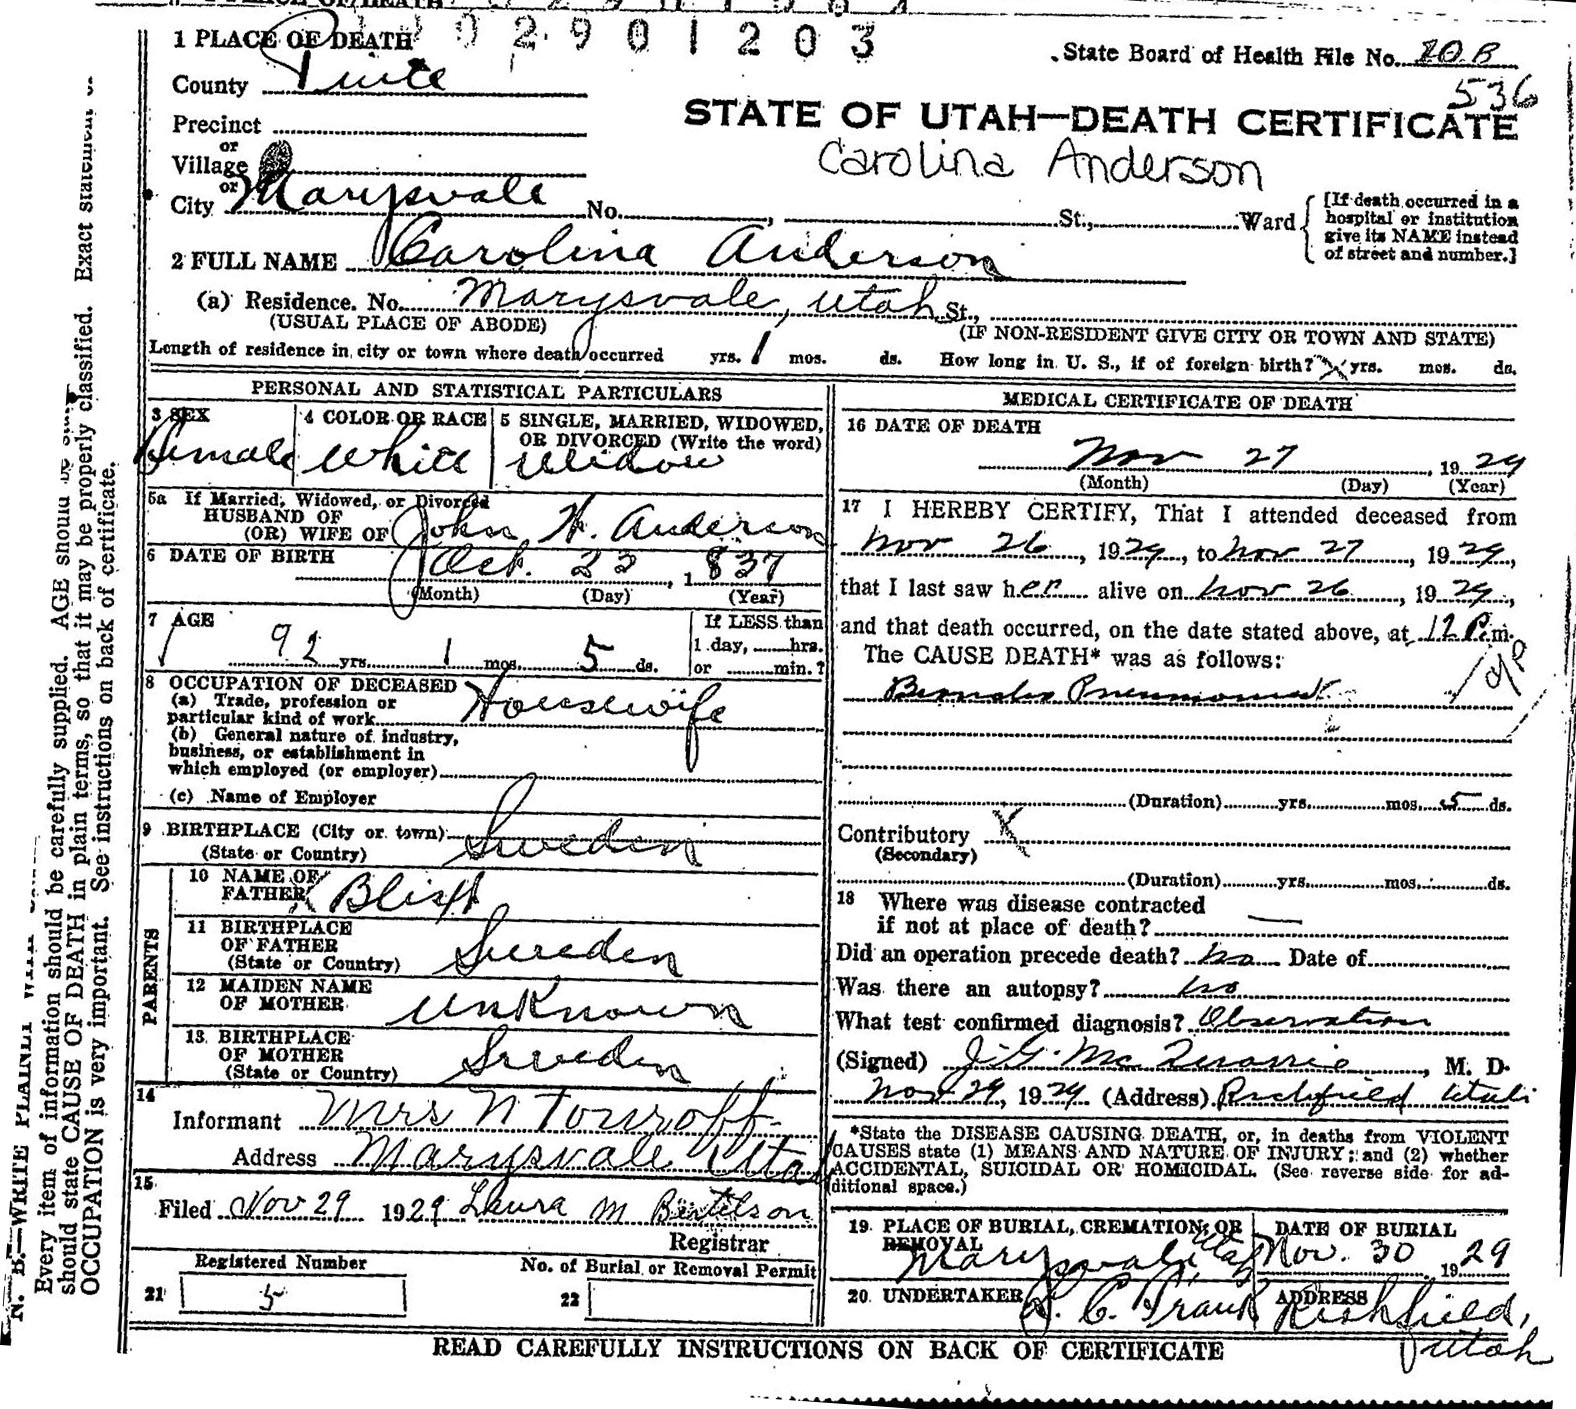 02901203
1 PLACE OF DEATH
State Board of Health File No. 20 B
County Piute
536
STATE OF UTAH—DEATH CERTIFICATE
Precinct
or
Carolina Anderson
Village
or
City Marysvale No. , St., Ward
[If death occurred in a
hospital or institution
give its NAME instead
of street and number.]
2 FULL NAME Carolina Anderson
(a) Residence. No. Marysvale, Utah St.,
(USUAL PLACE OF ABODE) (IF NON-RESIDENT GIVE CITY OR TOWN AND STATE)
Length of residence in city or town where death occurred yrs. 1 mos. ds. How long in U. S., if of foreign birth? X yrs. mos. ds.
PERSONAL AND STATISTICAL PARTICULARS
3 SEX
Female
4 COLOR OR RACE
White
5 SINGLE, MARRIED, WIDOWED,
OR DIVORCED (Write the word)
Widow
5a If Married, Widowed, or Divorced
HUSBAND OF
(OR) WIFE OF John H. Anderson
6 DATE OF BIRTH
Oct. 23, 1837
(Month) (Day) (Year)
7 AGE
92 yrs. 1 mos. 5 ds.
If LESS than
1 day, hrs.
or min.?
8 OCCUPATION OF DECEASED
(a) Trade, profession or
particular kind of work Housewife
(b) General nature of industry,
business, or establishment in
which employed (or employer)
(c) Name of Employer
9 BIRTHPLACE (City or town)
(State or Country) Sweden
PARENTS
10 NAME OF
FATHER Blixt
11 BIRTHPLACE
OF FATHER
(State or Country) Sweden
12 MAIDEN NAME
OF MOTHER unknown
13 BIRTHPLACE
OF MOTHER
(State or Country) Sweden
14
Informant Mrs N Touroff
Address Marysvale Utah
15
Filed Nov 29 1929 Laura M Bertelson
Registrar
Registered Number
21 5
No. of Burial or Removal Permit
22
MEDICAL CERTIFICATE OF DEATH
16 DATE OF DEATH
Nov 27, 1929
(Month) (Day) (Year)
17 I HEREBY CERTIFY, That I attended deceased from
Nov 26, 1929, to Nov 27, 1929,
that I last saw her alive on Nov 26, 1929,
and that death occurred, on the date stated above, at 12 P.m.
The CAUSE DEATH* was as follows:
Broncho Pneumonia
(Duration) yrs. mos. 5 ds.
Contributory X
(Secondary)
(Duration) yrs. mos. ds.
18 Where was disease contracted
if not at place of death?
Did an operation precede death? no Date of
Was there an autopsy? no
What test confirmed diagnosis? Observation
(Signed) J. G. McQuarrie, M. D.
Nov 29, 1929 (Address) Richfield Utah
*State the DISEASE CAUSING DEATH, or, in deaths from VIOLENT
CAUSES state (1) MEANS AND NATURE OF INJURY; and (2) whether
ACCIDENTAL, SUICIDAL OR HOMICIDAL. (See reverse side for ad-
ditional space.)
19 PLACE OF BURIAL, CREMATION, OR
REMOVAL
Marysvale Utah
DATE OF BURIAL
Nov. 30 1929
20 UNDERTAKER
ADDRESS
Richfield,
Utah
READ CAREFULLY INSTRUCTIONS ON BACK OF CERTIFICATE
N. B.—WRITE PLAINLY
Every item of information should be carefully supplied. AGE should be
should state CAUSE OF DEATH in plain terms, so that it may be properly classified. Exact statement
OCCUPATION is very important. See instructions on back of certificate.